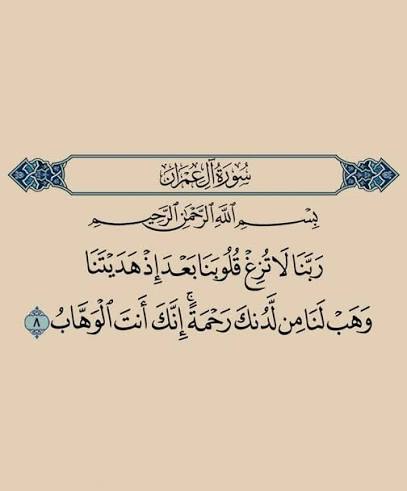 سُورَةُ آلِ عِمْرَان
بِسْمِ ٱللَّهِ ٱلرَّحْمَٰنِ ٱلرَّحِيمِ
رَبَّنَا لَا تُزِغْ قُلُوبَنَا بَعْدَ إِذْ هَدَيْتَنَا
وَهَبْ لَنَا مِن لَّدُنكَ رَحْمَةً ۚ إِنَّكَ أَنتَ ٱلْوَهَّابُ ٨